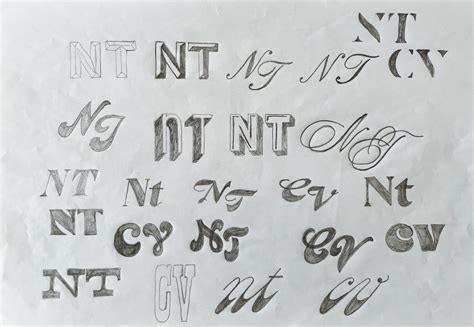 NT NT NT NT NT
CV
NT nt NT NT
NT Nt NT CV Nt
NT CV NT CV CV
NT CV nt cv